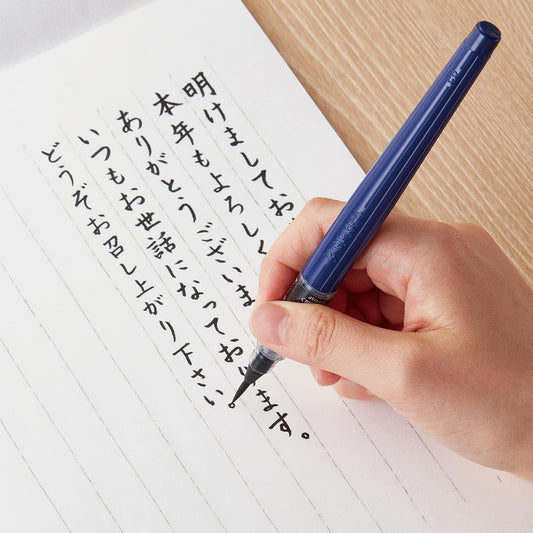 明けましてお
本年もよろしく
ありがとうございま
いつもお世話になっております。
どうぞお召し上がり下さい。